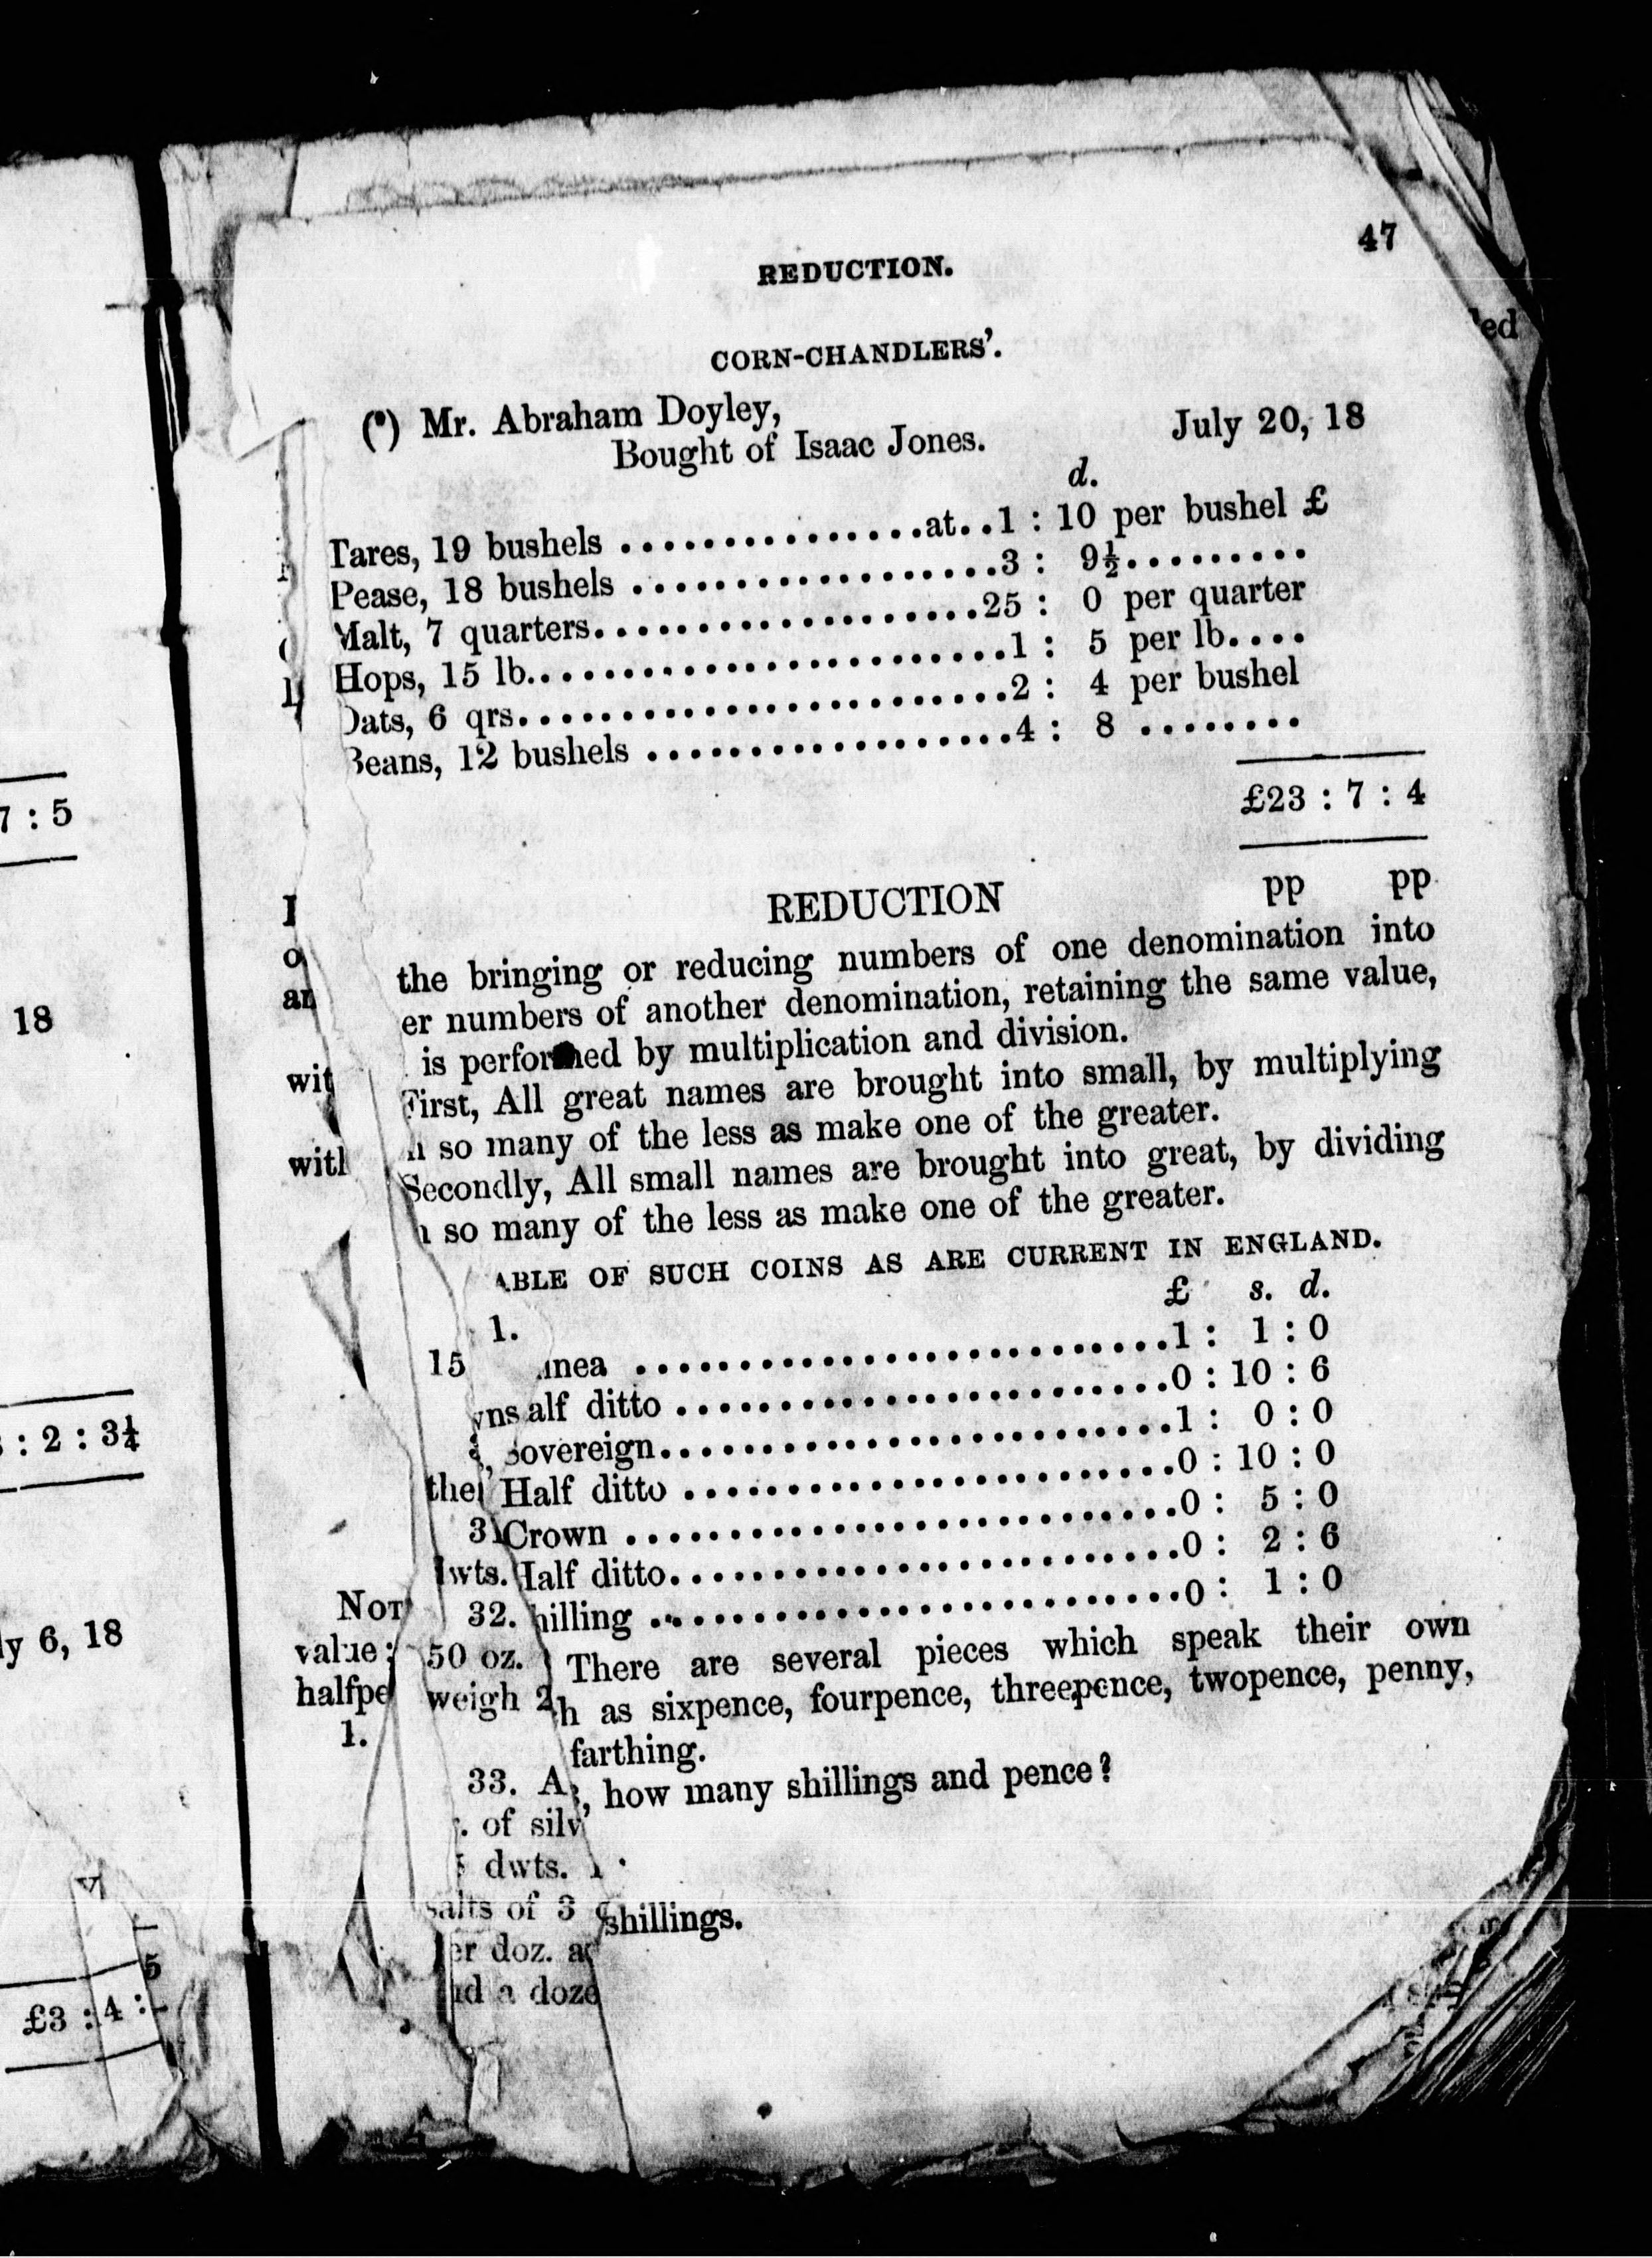 47
REDUCTION.
CORN-CHANDLERS'.
Mr. Abraham Doyley, July 20, 18
Bought of Isaac Jones.
d.
Tares, 19 bushels ...............at..1 : 10 per bushel £
Pease, 18 bushels ..................3 : 9½.........
Malt, 7 quarters...................25 : 0 per quarter
Hops, 15 lb........................1 : 5 per lb....
Oats, 6 qrs........................2 : 4 per bushel
Beans, 12 bushels ..................4 : 8 ........
£23 : 7 : 4
REDUCTION pp pp
the bringing or reducing numbers of one denomination into
er numbers of another denomination, retaining the same value,
is performed by multiplication and division.
First, All great names are brought into small, by multiplying
so many of the less as make one of the greater.
Secondly, All small names are brought into great, by dividing
so many of the less as make one of the greater.
ABLE OF SUCH COINS AS ARE CURRENT IN ENGLAND.
£ s. d.
1.
15 inea ..........................1 : 1 : 0
alf ditto ........................0 : 10 : 6
Sovereign.........................1 : 0 : 0
Half ditto ........................0 : 10 : 0
Crown ...........................0 : 5 : 0
dwts. Half ditto.........................0 : 2 : 6
32. hilling ..........................0 : 1 : 0
There are several pieces which speak their own
h as sixpence, fourpence, threepence, twopence, penny,
farthing.
how many shillings and pence?
shillings.
Not
value;
halfpe
1.
50 oz.
weigh 2
33. A
of silv
dwts.
salts of 3
er doz.
doze
7 : 5
18
: 2 : 3¼
y 6, 18
5
£3 : 4 :
wit
with
ed